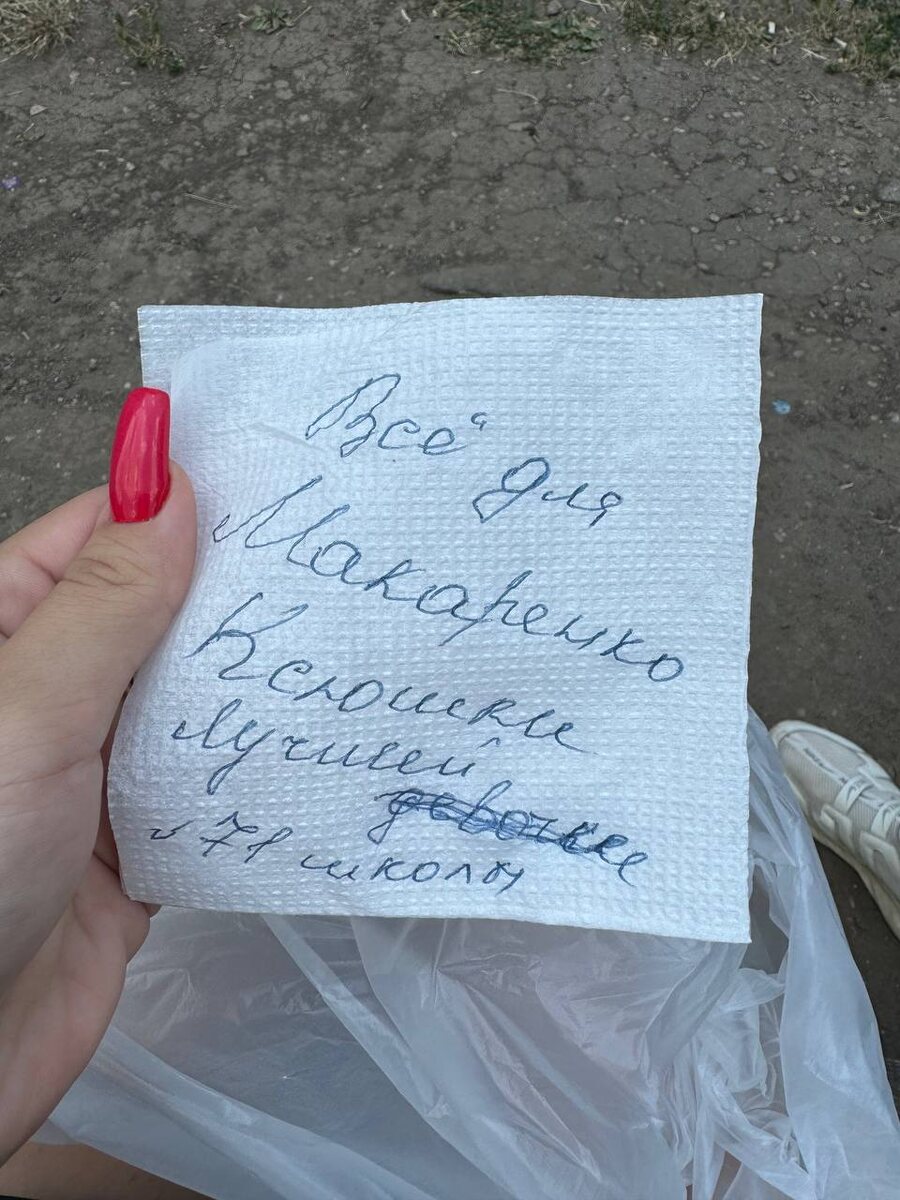 Всё для
Макаренко
Ксюшки
Лучшей
девочки
71 школы